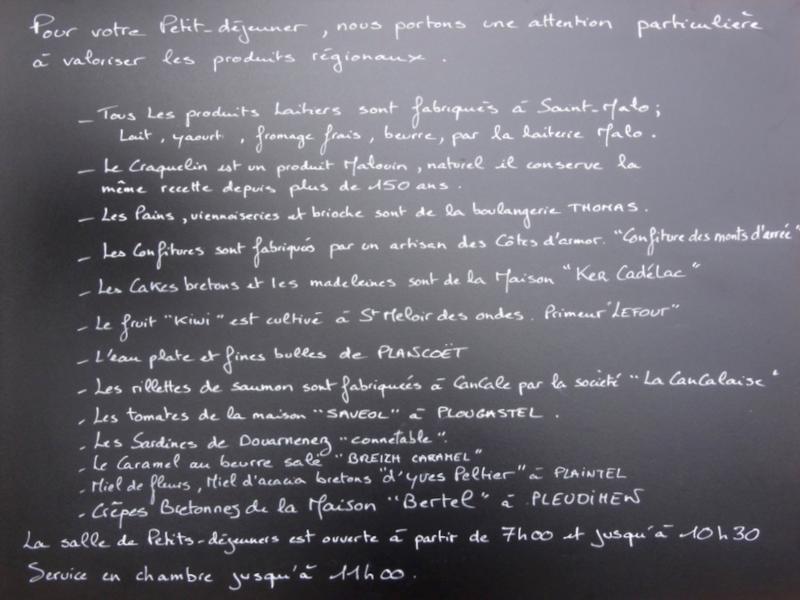 Pour votre Petit-déjeuner, nous portons une attention particulière
à valoriser les produits régionaux.
- Tous les produits Laitiers sont fabriqués à Saint-Malo;
Lait, yaourt, fromage frais, beurre, par la laiterie Malo.
- Le Craquelin est un produit Malouin, naturel il conserve la
même recette depuis plus de 150 ans.
- Les Pains, viennoiseries et brioche sont de la boulangerie THOMAS.
- Les Confitures sont fabriqués par un artisan des Côtes d'armor. "Confiture des monts d'arrée"
- Les Cakes bretons et les madeleines sont de la Maison "KER CADÉLAC"
- Le fruit "Kiwi" est cultivé à St Meloir des ondes. Primeur "LEFOUR"
- L'eau plate et fines bulles de PLANCOËT
- Les rillettes de saumon sont fabriquées à Cancale par la société "La Cancalaise"
- Les tomates de la maison "SAVEOL" à PLOUGASTEL.
- Les Sardines de Douarnenez "connetable".
- Le Caramel au beurre salé "BREIZH CARAMEL"
- Miel de fleurs, Miel d'acacia bretons "d'Yves Peltier" à PLAINTEL
- Crêpes Bretonnes de la Maison "Bertel" à PLEUDIHEN
La salle de Petits-déjeuners est ouverte à partir de 7h00 et jusqu'à 10h30
Service en chambre jusqu'à 11h00.